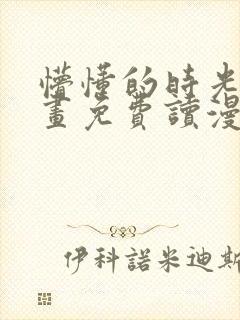 懵懂的時光
畫免費讀漫
伊科諾米迪斯